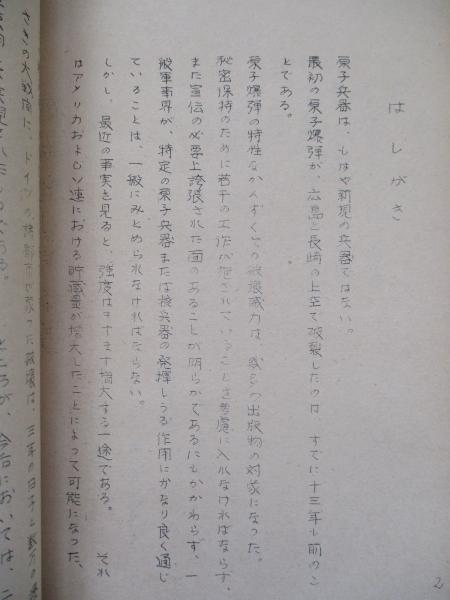 はしがき
原子兵器は、もはや新規の兵器ではない。
最初の原子爆弾が、広島と長崎の上空で破裂したのは すでに十三年も前のこ
とである。
原子爆弾の特性なかんずくその破壊威力は、多くの出版物の対象になった。
秘密保持のために若干の工作が施されていることを考慮に入れなければならず、
また宣伝の必要上誇張された面のあることが明らかであるにもかかわらず、一
般軍事界が、特定の原子兵器または核兵器の発揮しうる作用にかなり良く通じ
ていることは、一般にみとめられなければならない。
しかし、最近の事実を見ると、強度はますます増大する一途である。 それ
はアメリカおよびソ連における貯蔵量が増大したことによって可能になった、
さきの大戦後に、ドイツの
2